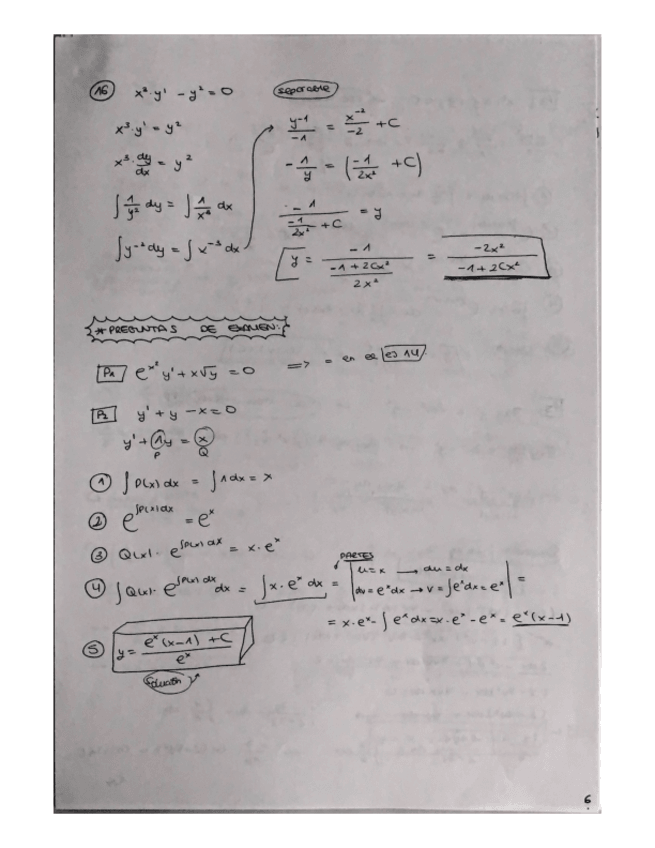 16 x³·y' - y² = 0 separable
x³·y' = y²
x³·dy/dx = y²
∫ 1/y² dy = ∫ 1/x³ dx
∫ y⁻² dy = ∫ x⁻³ dx
y⁻¹/-1 = x⁻²/-2 + C
-1/y = (-1/2x² + C)
-1/(-1/2x² + C) = y
y = -1/((-1+2Cx²)/2x²) = -2x²/(-1+2Cx²)
* PREGUNTAS DE EXAMEN:
P1 e^(x²) y' + x√y = 0 => = en el ej 14.
P2 y' + y - x = 0
y' + 1y = x
P Q
1 ∫P(x)dx = ∫1dx = x
2 e^(∫P(x)dx) = e^x
3 Q(x)· e^(∫P(x)dx) = x·e^x
PARTES
4 ∫Q(x)· e^(∫P(x)dx) dx = ∫x·e^x dx = | u=x → du=dx
dv=e^x dx → v=∫e^x dx=e^x | =
= x·e^x - ∫e^x dx = x·e^x - e^x = e^x(x-1)
5 y = (e^x(x-1)+C)/e^x
Solución
6